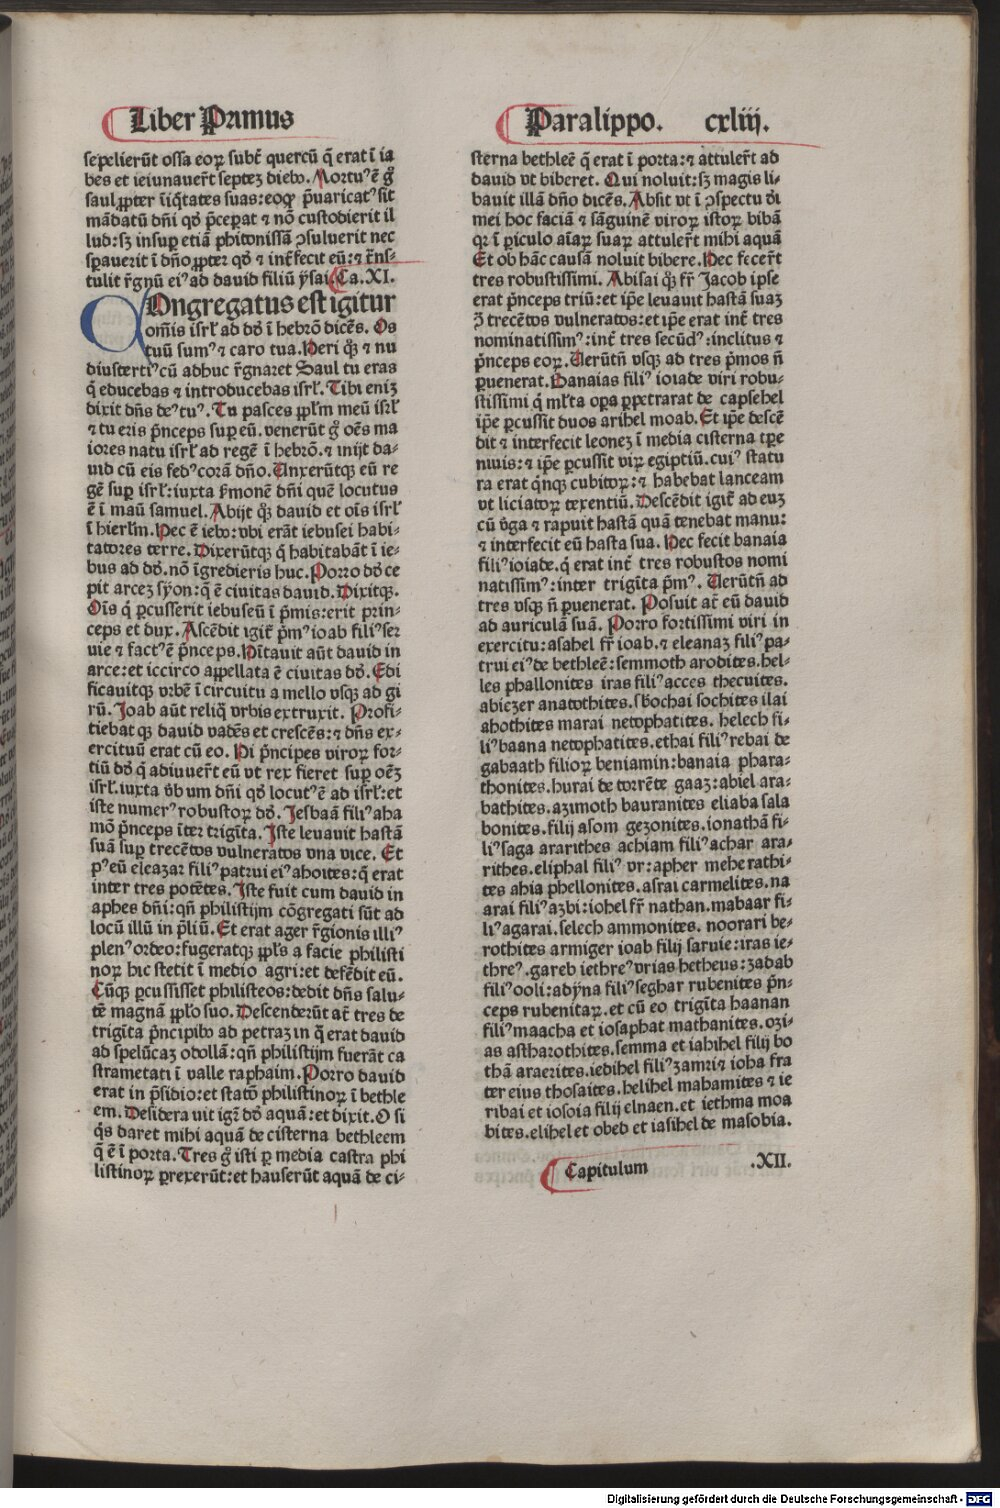 Liber Primus
sepelierūt ossa eoꝝ subt̄ quercū q̄ erat ī ia
bes et ieiunauer̄t septeʒ dieb᷒. Mortu᷒ ē g̊
saul ꝓpter īiq̄tates suas: eoqꝫ p̄uaricat᷒ sit
mādatū dn̄i qd̓ p̄cepat ⁊ nō custodierit il
lud: sʒ insuꝑ etiā phitonissā ↄsuluerit nec
sꝑauerit ī dn̄o ꝓpter qd̓ ⁊ int̄fecit eū: ⁊ tr̄ns⸗
tulit r̄gnū ei᷒ ad dauid filiū ysai Ca. XI.
Ongregatus est igitur
om̄is isrl̄ ad dd̓ ī hebrō dicēs. Os
tuū sum᷒ ⁊ caro tua. Heri qꝫ ⁊ nu
diusterti᷒ cū adhuc r̄gnaret Saul tu eras
q̄ educebas ⁊ introducebas isrl̄. Tibi eniʒ
dixit dn̄s de᷒ tu᷒. Tu pasces ꝓpl̄m meū isrl̄
⁊ tu eris p̄nceps suꝑ eū. venerūt g̊ oēs ma
iores natu isrl̄ ad regē ī hebrō. ⁊ inijt da⸗
uid cū eis fed᷒ corā dn̄o. Unxerūtqꝫ eū re
gē suꝑ isrl̄: iuxta s̄monē dn̄i quē locutus
ē ī manū samuel. Abijt qꝫ dauid et oīs isrl̄
ī hierlm̄. Hec ē iebus: vbi erāt iebusei habi⸗
tatores terre. Dixerūtqꝫ q̄ habitabāt ī ie⸗
bus ad dd̓. nō īgredieris huc. Porro dd̓ ce
pit arceʒ syon: q̄ ē ciuitas dauid. Dixitqꝫ.
Oīs q̄ ꝑcusserit iebuseū ī p̄mis: erit prin⸗
ceps et dux. Ascēdit igit̄ p̄m᷒ ioab fili᷒ ser
uie ⁊ fact᷒ ē p̄nceps. Hītauit aūt dauid in
arce: et iccirco appellata ē ciuitas dd̓. Edi
ficauitqꝫ vrbē ī circuitu a mello vsqꝫ ad gi
rū. Joab aūt reliq̄ vrbis extruxit. Profi⸗
tiebat qꝫ dauid vadēs et crescēs: ⁊ dn̄s ex⸗
ercituū erat cū eo. Hi p̄ncipes viroꝝ for⸗
tiū dd̓ q̄ adiuuer̄t eū vt rex fieret suꝑ oēʒ
isrl̄. iuxta v̄bum dn̄i qd̓ locut᷒ ē ad isrl̄: et
iste numer᷒ robustoꝝ dd̓. Jesbaā fili᷒ aha
mō p̄nceps īter trigīta. Iste leuauit hastā
suā suꝑ trecētos vulneratos vna vice. Et
p᷒ eū eleazar fili᷒ patrui ei᷒ ahoites: q̄ erat
inter tres potētes. Iste fuit cum dauid in
aphes dn̄i: qn̄ philistijm cōgregati sūt ad
locū illū in p̄liū. Et erat ager r̄gionis illi᷒
plen᷒ ordeo: fugeratqꝫ ꝓpl̄s a facie philisti
noꝝ hic stetit ī medio agri: et defēdit eū.
Cūqꝫ ꝑcussisset philisteos: dedit dn̄s salu⸗
tē magnā ꝓpl̄o suo. Descenderūt at̄ tres de
trigīta p̄ncipib᷒ ad petraʒ in q̄ erat dauid
ad spelūcaʒ odollā: qn̄ philistijm fuerāt ca
strametati ī valle raphaim. Porro dauid
erat in p̄sidio: et statō philistinoꝝ ī bethle
em. Desidera uit igr̄ dd̓ aquā: et dixit. O si
q̄s daret mihi aquā de cisterna bethleem
q̄ ē ī porta. Tres g̊ isti ꝑ media castra phi
listinoꝝ ꝑrexerūt: et hauserūt aquā de ci⸗
Paralippo. cxliij.
sterna bethleē q̄ erat ī porta: ⁊ attuler̄t ad
dauid vt biberet. Qui noluit: sʒ magis li⸗
bauit illā dn̄o dicēs. Absit vt ī ↄspectu d̓i
mei hoc faciā ⁊ sāguinē viroꝝ istoꝝ bibā
qꝛ ī ꝑiculo aīaꝝ suaꝝ attuler̄t mihi aquā
Et ob hāc causā noluit bibere. Hec fecer̄t
tres robustissimi. Abisai qꝫ fr̄ Jacob ipse
erat p̄nceps triū: et ip̄e leuauit hastā suaʒ
ↄ̄ trecētos vulneratos: et ip̄e erat int̄ tres
nominatissim᷒: int̄ tres secūd᷒: inclitus ⁊
p̄nceps eoꝝ. Uerūtn̄ vsqꝫ ad tres p̄mos n̄
ꝑuenerat. Banaias fili᷒ ioiade viri robu⸗
stissimi q̄ ml̄ta oꝑa ꝑpetrarat de capsehel
ip̄e ꝑcussit duos arihel moab. Et ip̄e descē
dit ⁊ interfecit leoneʒ ī media cisterna tꝑe
niuis: ⁊ ip̄e ꝑcussit viꝝ egiptiū. cui᷒ statu
ra erat q̄nqꝫ cubitoꝝ: ⁊ habebat lanceam
vt liciatoꝝ texentiū. Descēdit igit̄ ad euʒ
cū v̄ga ⁊ rapuit hastā quā tenebat manu:
⁊ interfecit eū hasta sua. Hec fecit banaia
fili᷒ ioiade. q̄ erat int̄ tres robustos nomi
natissim᷒: inter trigīta p̄m᷒. Uerūtn̄ ad
tres vsqꝫ n̄ ꝑuenerat. Posuit at̄ eū dauid
ad auriculā suā. Porro fortissimi viri in
exercitu: asahel fr̄ ioab. ⁊ eleanaʒ fili᷒ pa⸗
trui ei᷒ de bethleē: semmoth arodites. hel⸗
les phallonites iras fili᷒ acces thecuites.
abiezer anatothites. sbochai sochites ilai
ahothites marai netophatites. helech fi⸗
li᷒ baana netophatites. ethai fili᷒ rebai de
gabaath filioꝝ beniamin: banaia phara⸗
thonites. hurai de torrēte gaaz: abiel ara⸗
bathites. azimoth bauranites eliaba sala
bonites. filij asom gezonites. ionathā fi⸗
li᷒ saga ararithes achiam fili᷒ achar ara⸗
rithes. eliphal fili᷒ vr: apher mehe rathi⸗
tes ahia phellonites. asrai carmelites. na
arai fili᷒ azbi: iohel fr̄ nathan. mabaar fi⸗
li᷒ agarai. selech ammonites. noorari be⸗
rothites armiger ioab filij saruie: iras ie⸗
thre᷒. gareb iethre᷒ vrias hetheus: zadab
fili᷒ ooli: adyna fili᷒ seghar rubenites p̄n⸗
ceps rubenitaꝝ. et cū eo trigīta haanan
fili᷒ maacha et iosaphat mathanites. ozi⸗
as astharothites. semma et iahihel filij bo
thā araerites. iedihel fili᷒ zamri ⁊ ioha fra
ter eius thosaites. helihel mahamites ⁊ ie
ribai et iosoia filij elnaen. et iethma moa
bites. elihel et obed et iasihel de masobia.
Capitulum .XII.
Digitalisierung gefördert durch die Deutsche Forschungsgemeinschaft - DFG